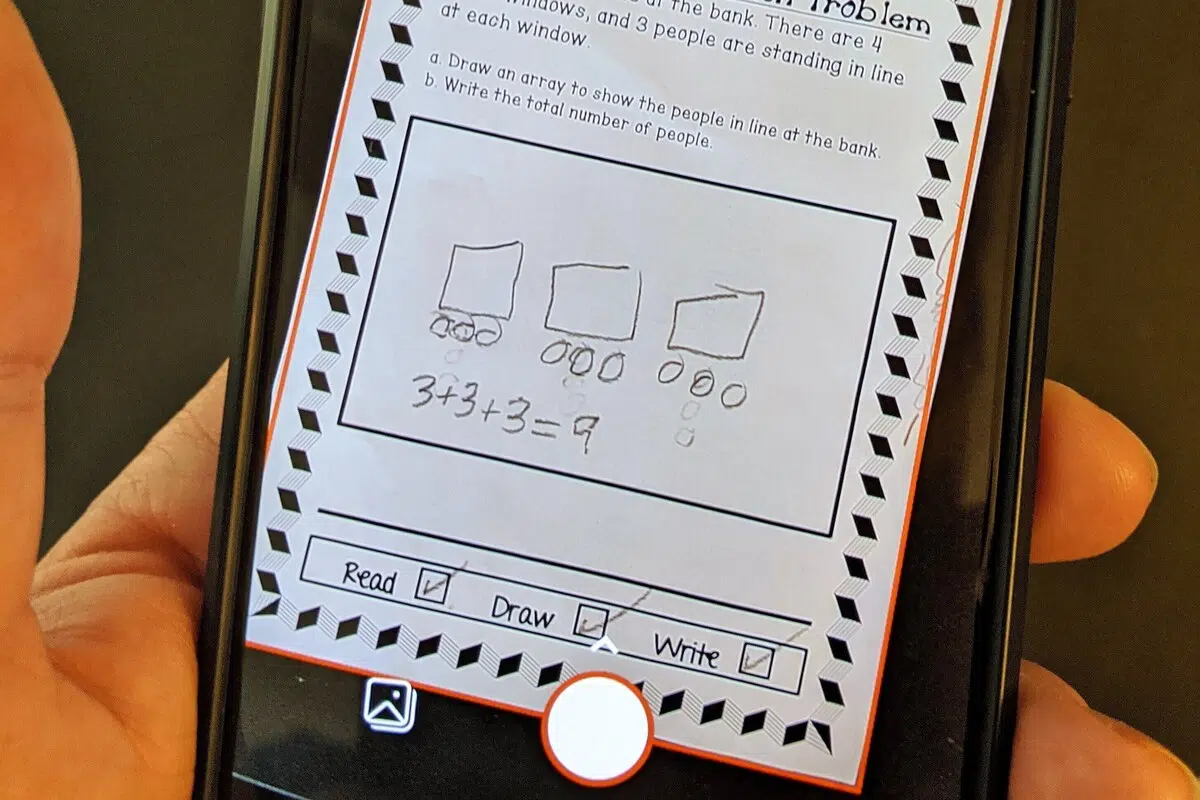 Problem
at the bank. There are 4
windows, and 3 people are standing in line
at each window.
a. Draw an array to show the people in line at the bank.
b. Write the total number of people.
3+3+3=9
Read Draw Write